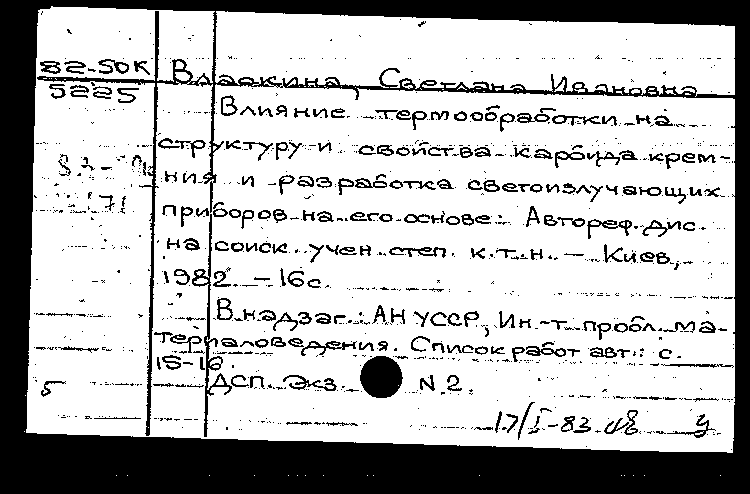 82-50К
5225
Власкина, Светлана Ивановна
Влияние термообработки на
структуру и свойства карбида крем-
ния и разработка светоизлучающих
приборов на его основе: Автореф. дис.
на соиск. учен. степ. к.т.н. – Киев,
1982. – 16с.
В надзаг.: АН УССР, Ин-т пробл. ма-
териаловедения. Список работ авт.: с.
15-16.
ДСП. Экз. N 2.
5
17/I-83